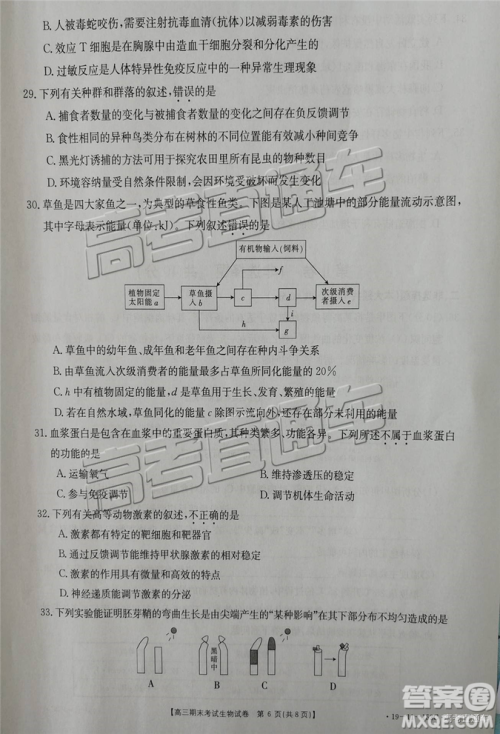 B. 人被毒蛇咬伤,需要注射抗毒血清(抗体)以减弱毒素的伤害
C. 效应 T 细胞是在胸腺中由造血干细胞分裂和分化产生的
D. 过敏反应是人体特异性免疫反应的一种异常生理现象
29. 下列有关种群和群落的叙述,错误的是
A. 捕食者数量的变化与被捕食者数量的变化之间存在负反馈调节
B. 食性相同的异种鸟类分布在树林的不同地方可减小种间竞争
C. 黑光灯诱捕的方法可用于探究农田里所有昆虫的物种数目
D. 环境容纳量受自然环境影响,会因环境受破坏而发生改变
30. 草鱼是四大家鱼之一,为典型的草食性鱼类。下图是某人工池塘中的部分能量流动示意图,
其中字母表示能量(单位:kJ)。下列叙述错误的是
有机物输入(饲料)
f
植物固定
太阳能a
草鱼摄
入b
c
d
次级消费
者摄入e
h
i
g
A. 草鱼中的幼年鱼、成年鱼和老年鱼之间存在种内斗争关系
B. 由草鱼流入次级消费者的能量最多占草鱼同化能量的 20%
C. h 中有植物固定的能量,d 是草鱼用于生长、发育、繁殖的能量
D. 若在自然水域,草鱼同化的能量 c 除图示流向外,还存在部分未利用的能量
31. 血浆蛋白是包含在血浆中的重要蛋白质,其种类繁多、功能各异。下列所述不属于血浆蛋白
的功能的是
A. 运输氧气
B. 维持渗透压的稳态
C. 参与免疫调节
D. 调节机体生命活动
32. 下列有关高等动物激素的叙述,不正确的是
A. 激素都有特定的靶细胞和靶器官
B. 通过反馈调节能维持甲状腺激素的相对稳定
C. 激素是人体内唯一的信息分子
D. 神经递质能影响某些激素的调节
33. 下列实验能证明胚芽鞘的弯曲生长是由尖端产生的“某种影响”在其下部分布不均匀造成的是
黑暗中
A
B
C
D
【高三期末考试生物试卷 第 6 页(共 8 页)】
高考直通车